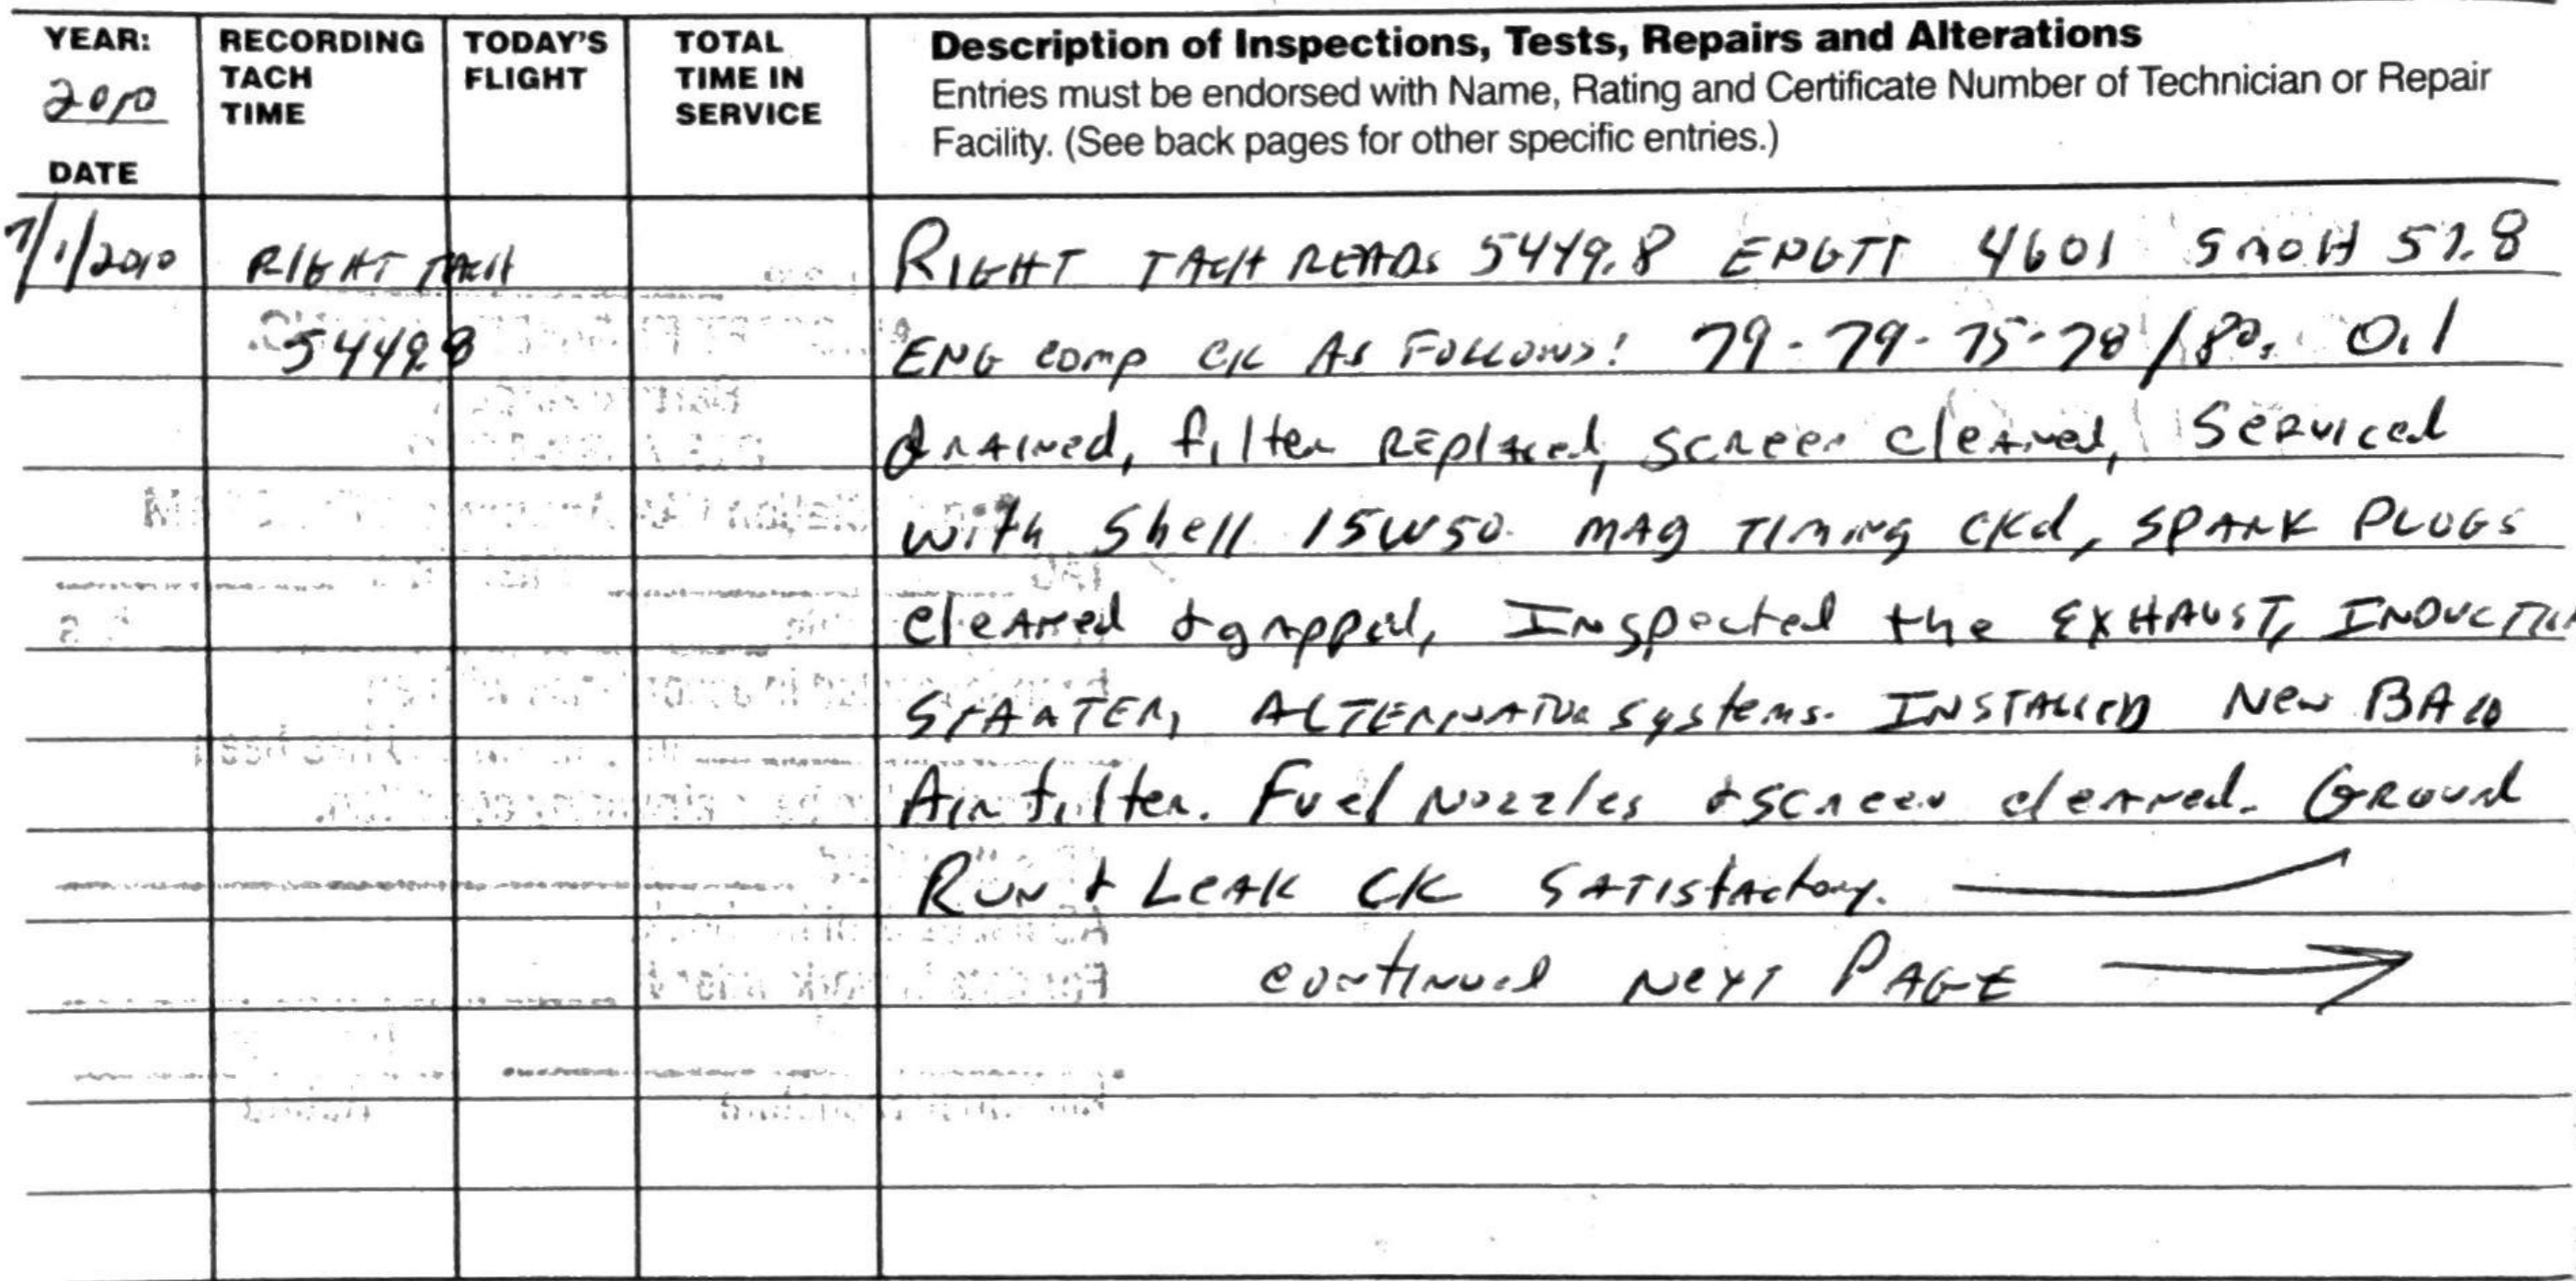 YEAR: RECORDING TODAY'S TOTAL Description of Inspections, Tests, Repairs and Alterations
2010 TACH FLIGHT TIME IN Entries must be endorsed with Name, Rating and Certificate Number of Technician or Repair
TIME SERVICE Facility. (See back pages for other specific entries.)
DATE
7/1/2010 RIGHT TACH RIGHT TACH READS 5449.8 ENGTT 4601 SMOH 57.8
5449.8 ENG comp CK As Follows: 79-79-75-78/80. Oil
drained, filter REplaced, screen cleaned, Serviced
with Shell 15W50. MAg TIming CKd, SPARK PLUGS
cleaned & gapped, Inspected the EXHAUST, INDUCTION
STARTER, ALTERNATOR systems. INSTALLED New
Air filter. Fuel Nozzles & screen cleaned. GROUND
RUN & LEAK CK SATISfactory.
continued NEXT PAGE →